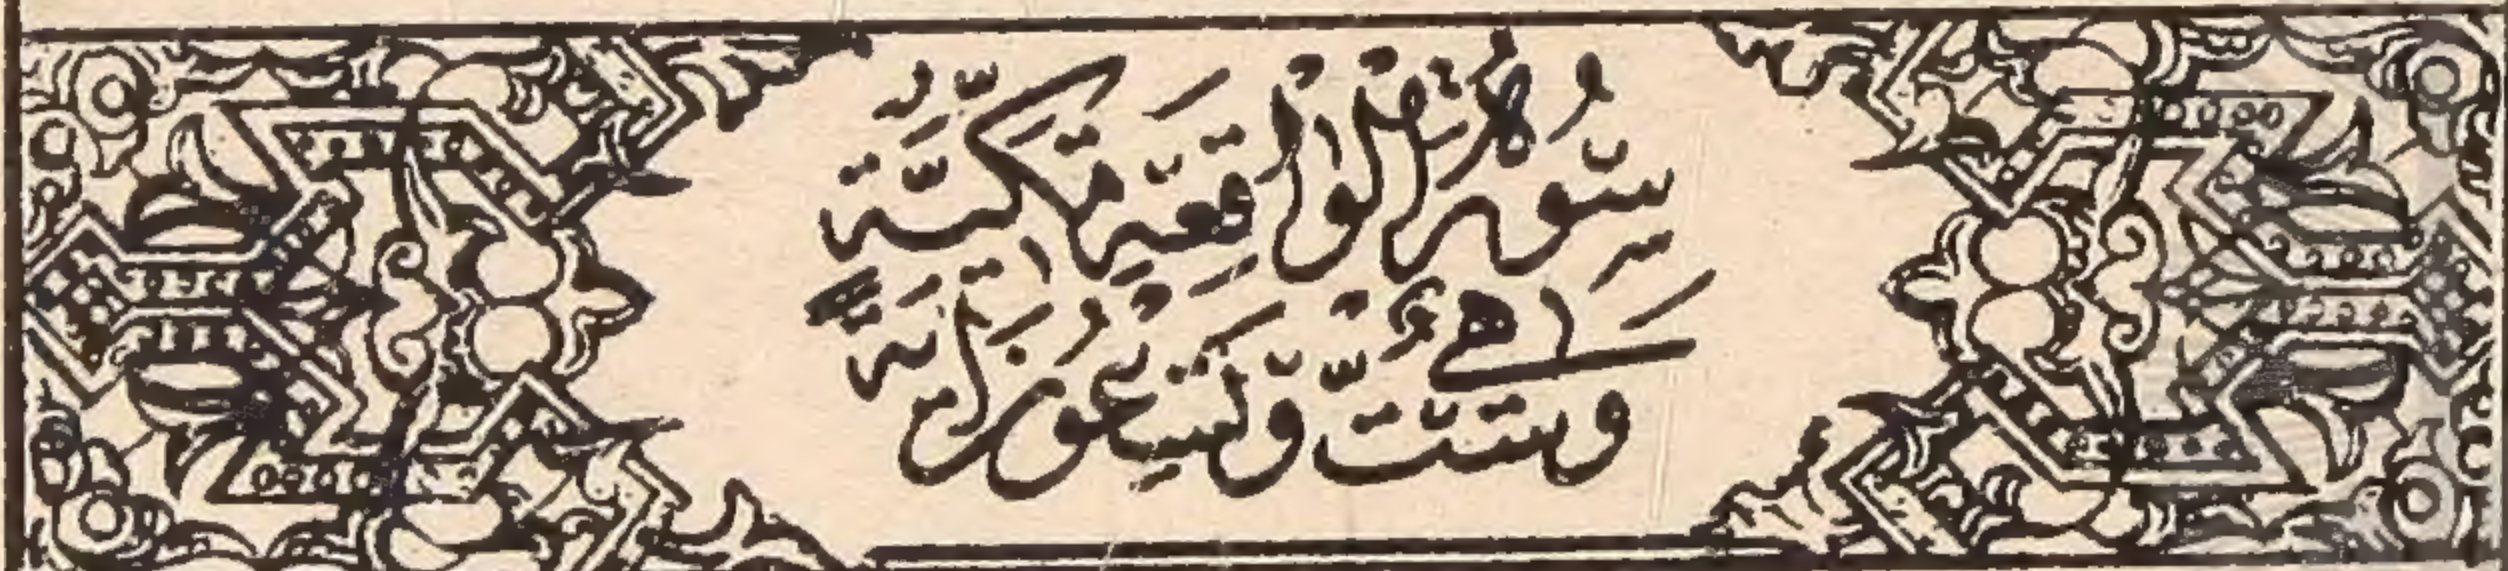 سُورَةُ الْوَاقِعَةِ مَكِّيَّةٌ
وَهِيَ سِتٌّ وَتِسْعُونَ اٰيَةً